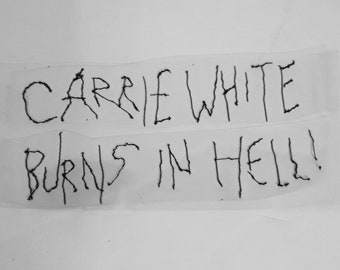 CARRIE WHITE
BURNS IN HELL!